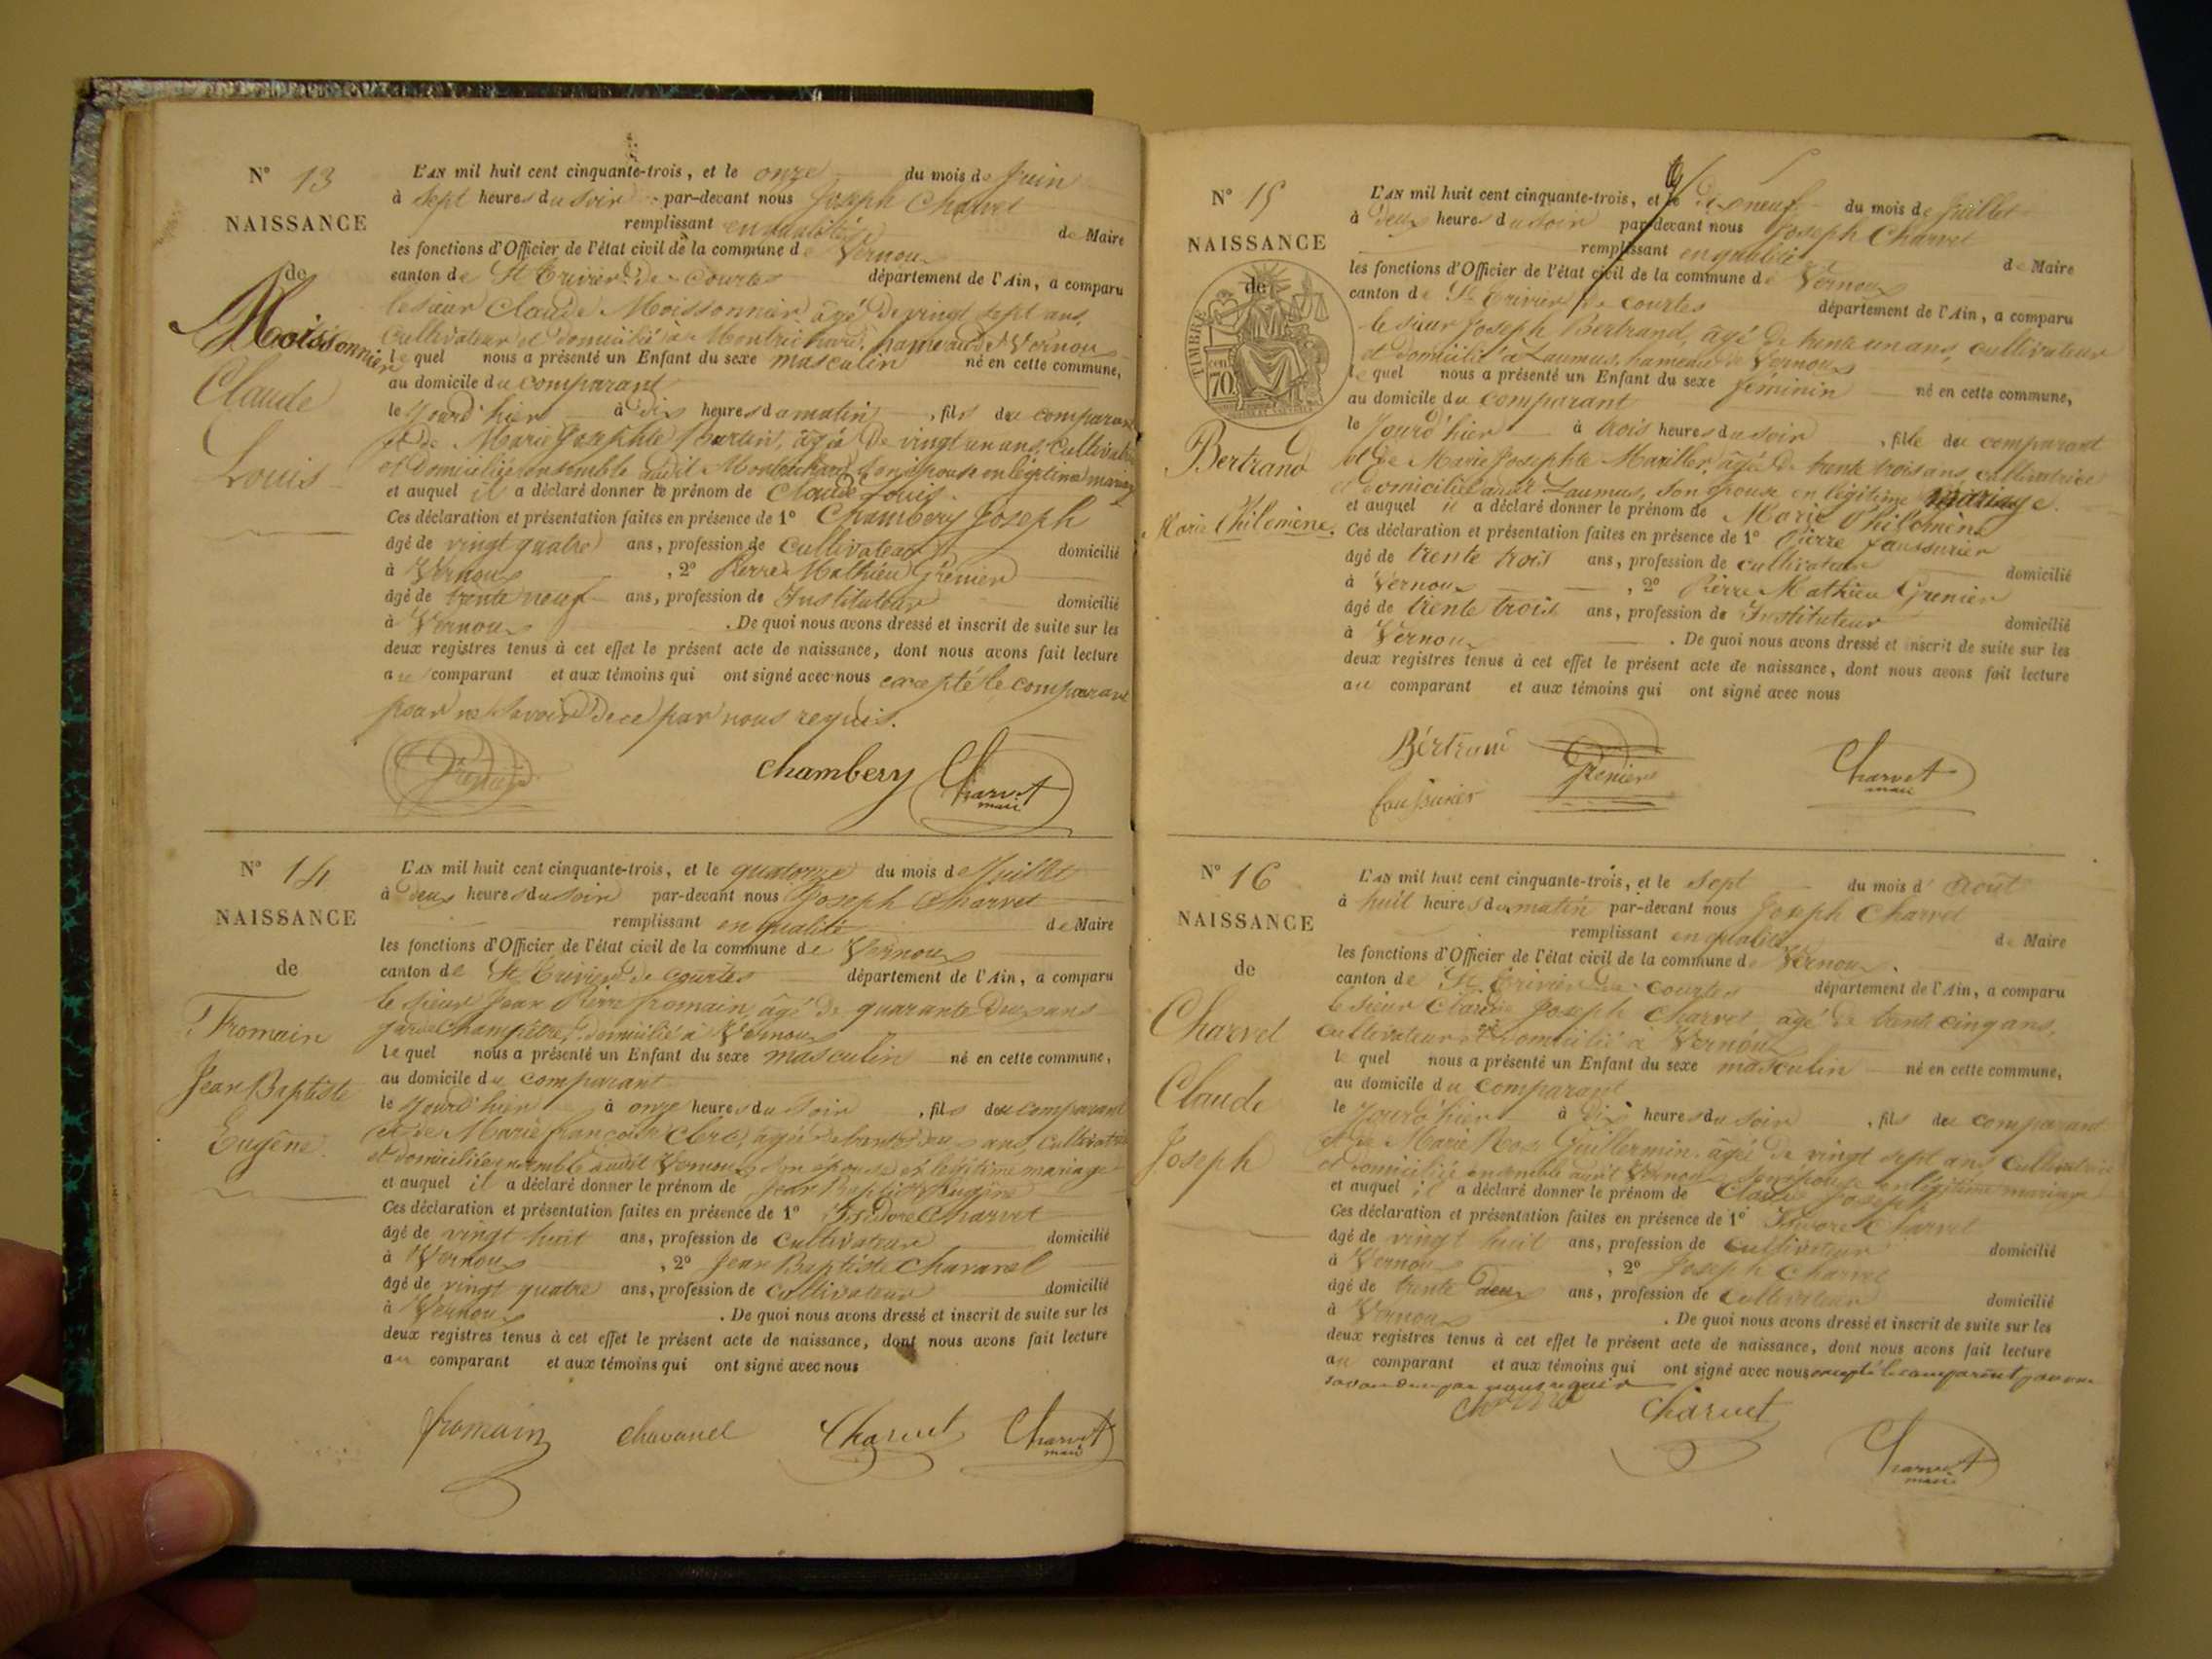 N° 13
NAISSANCE
de
Moissonnier
Claude
Louis
L'AN mil huit cent cinquante-trois, et le onze du mois de juin
à sept heures du soir par-devant nous Joseph Charvet
remplissant en qualité de Maire
les fonctions d'Officier de l'état civil de la commune de Vernoux
canton de St Trivier de courtes département de l'Ain, a comparu
le sieur Claude Moissonnier âgé de vingt sept ans,
cultivateur et domicilié à Montrichard, hameau de Vernoux
lequel nous a présenté un Enfant du sexe masculin né en cette commune,
au domicile du comparant
le jourd'hier à dix heures du matin, fils du comparant
et de Marie Josephte Martin, âgée de vingt un ans, cultivatrice
et domiciliée ensemble audit Montrichard son épouse en légitime mariage
et auquel il a déclaré donner le prénom de Claude Louis.
Ces déclaration et présentation faites en présence de 1° Chambery Joseph
âgé de vingt quatre ans, profession de cultivateur domicilié
à Vernoux, 2° Pierre Mathieu Grenier
âgé de trente neuf ans, profession de Instituteur domicilié
à Vernoux. De quoi nous avons dressé et inscrit de suite sur les
deux registres tenus à cet effet le présent acte de naissance, dont nous avons fait lecture
au comparant et aux témoins qui ont signé avec nous excepté le comparant
pour ne savoir de ce par nous requis.
Grenier chambery Charvet
maire
N° 14
NAISSANCE
de
Fromain
Jean Baptiste
Eugène.
L'AN mil huit cent cinquante-trois, et le quatorze du mois de Juillet
à deux heures du soir par-devant nous Joseph Charvet
remplissant en qualité de Maire
les fonctions d'Officier de l'état civil de la commune de Vernoux
canton de St Trivier de courtes département de l'Ain, a comparu
le sieur Jean Pierre fromain, âgé de quarante deux ans
garde champêtre, domicilié à Vernoux
lequel nous a présenté un Enfant du sexe masculin né en cette commune,
au domicile du comparant
le jourd'hier à onze heures du soir, fils du comparant
et de Marie françoise Clerc, âgée de trente deux ans, cultivatrice
et domiciliée ensemble audit Vernoux son épouse en légitime mariage
et auquel il a déclaré donner le prénom de Jean Baptiste Eugène
Ces déclaration et présentation faites en présence de 1° Isidore Charvet
âgé de vingt huit ans, profession de cultivateur domicilié
à Vernoux, 2° Jean Baptiste Chavanel
âgé de vingt quatre ans, profession de cultivateur domicilié
à Vernoux. De quoi nous avons dressé et inscrit de suite sur les
deux registres tenus à cet effet le présent acte de naissance, dont nous avons fait lecture
au comparant et aux témoins qui ont signé avec nous
fromain chavanel Charvet Charvet
maire
N° 15
NAISSANCE
de
TIMBRE
70 cen
Bertrand
Marie Philomène.
L'AN mil huit cent cinquante-trois, et le dixneuf du mois de juillet
à deux heures du soir par-devant nous Joseph Charvet
remplissant en qualité de Maire
les fonctions d'Officier de l'état civil de la commune de Vernoux
canton de St Trivier de courtes département de l'Ain, a comparu
le sieur Joseph Bertrand, âgé de trente un ans, cultivateur
et domicilié à Laumus, hameau de Vernoux
lequel nous a présenté un Enfant du sexe féminin né en cette commune,
au domicile du comparant
le jourd'hier à trois heures du soir, fille du comparant
et de Marie Josephte Mariller, âgée de trente trois ans, cultivatrice
et domiciliée audit Laumus, son épouse en légitime mariage.
et auquel il a déclaré donner le prénom de Marie Philomène
Ces déclaration et présentation faites en présence de 1° Pierre faussurier
âgé de trente trois ans, profession de cultivateur domicilié
à Vernoux, 2° Pierre Mathieu Grenier
âgé de trente trois ans, profession de Instituteur domicilié
à Vernoux. De quoi nous avons dressé et inscrit de suite sur les
deux registres tenus à cet effet le présent acte de naissance, dont nous avons fait lecture
au comparant et aux témoins qui ont signé avec nous
Bértrand Grenier Charvet
maire
faussurier
N° 16
NAISSANCE
de
Charvet
Claude
Joseph
L'AN mil huit cent cinquante-trois, et le sept du mois d'août
à huit heures du matin par-devant nous Joseph Charvet
remplissant en qualité de Maire
les fonctions d'Officier de l'état civil de la commune de Vernoux.
canton de St Trivier de courtes département de l'Ain, a comparu
le sieur Claude Joseph Charvet âgé de trente cinq ans,
cultivateur et domicilié à Vernoux
lequel nous a présenté un Enfant du sexe masculin né en cette commune,
au domicile du comparant
le jourd'hier à dix heures du soir, fils du comparant
et de Marie Rose Guillermin, âgée de vingt sept ans, cultivatrice
et domiciliée ensemble audit Vernoux son épouse en légitime mariage
et auquel il a déclaré donner le prénom de Claude Joseph
Ces déclaration et présentation faites en présence de 1° Isidore Charvet
âgé de vingt huit ans, profession de cultivateur domicilié
à Vernoux, 2° Joseph Charvet
âgé de trente deux ans, profession de cultivateur domicilié
à Vernoux. De quoi nous avons dressé et inscrit de suite sur les
deux registres tenus à cet effet le présent acte de naissance, dont nous avons fait lecture
au comparant et aux témoins qui ont signé avec nous excepté le comparant pour ne
savoir de ce par nous requis
Charvet Charvet
Charvet
maire